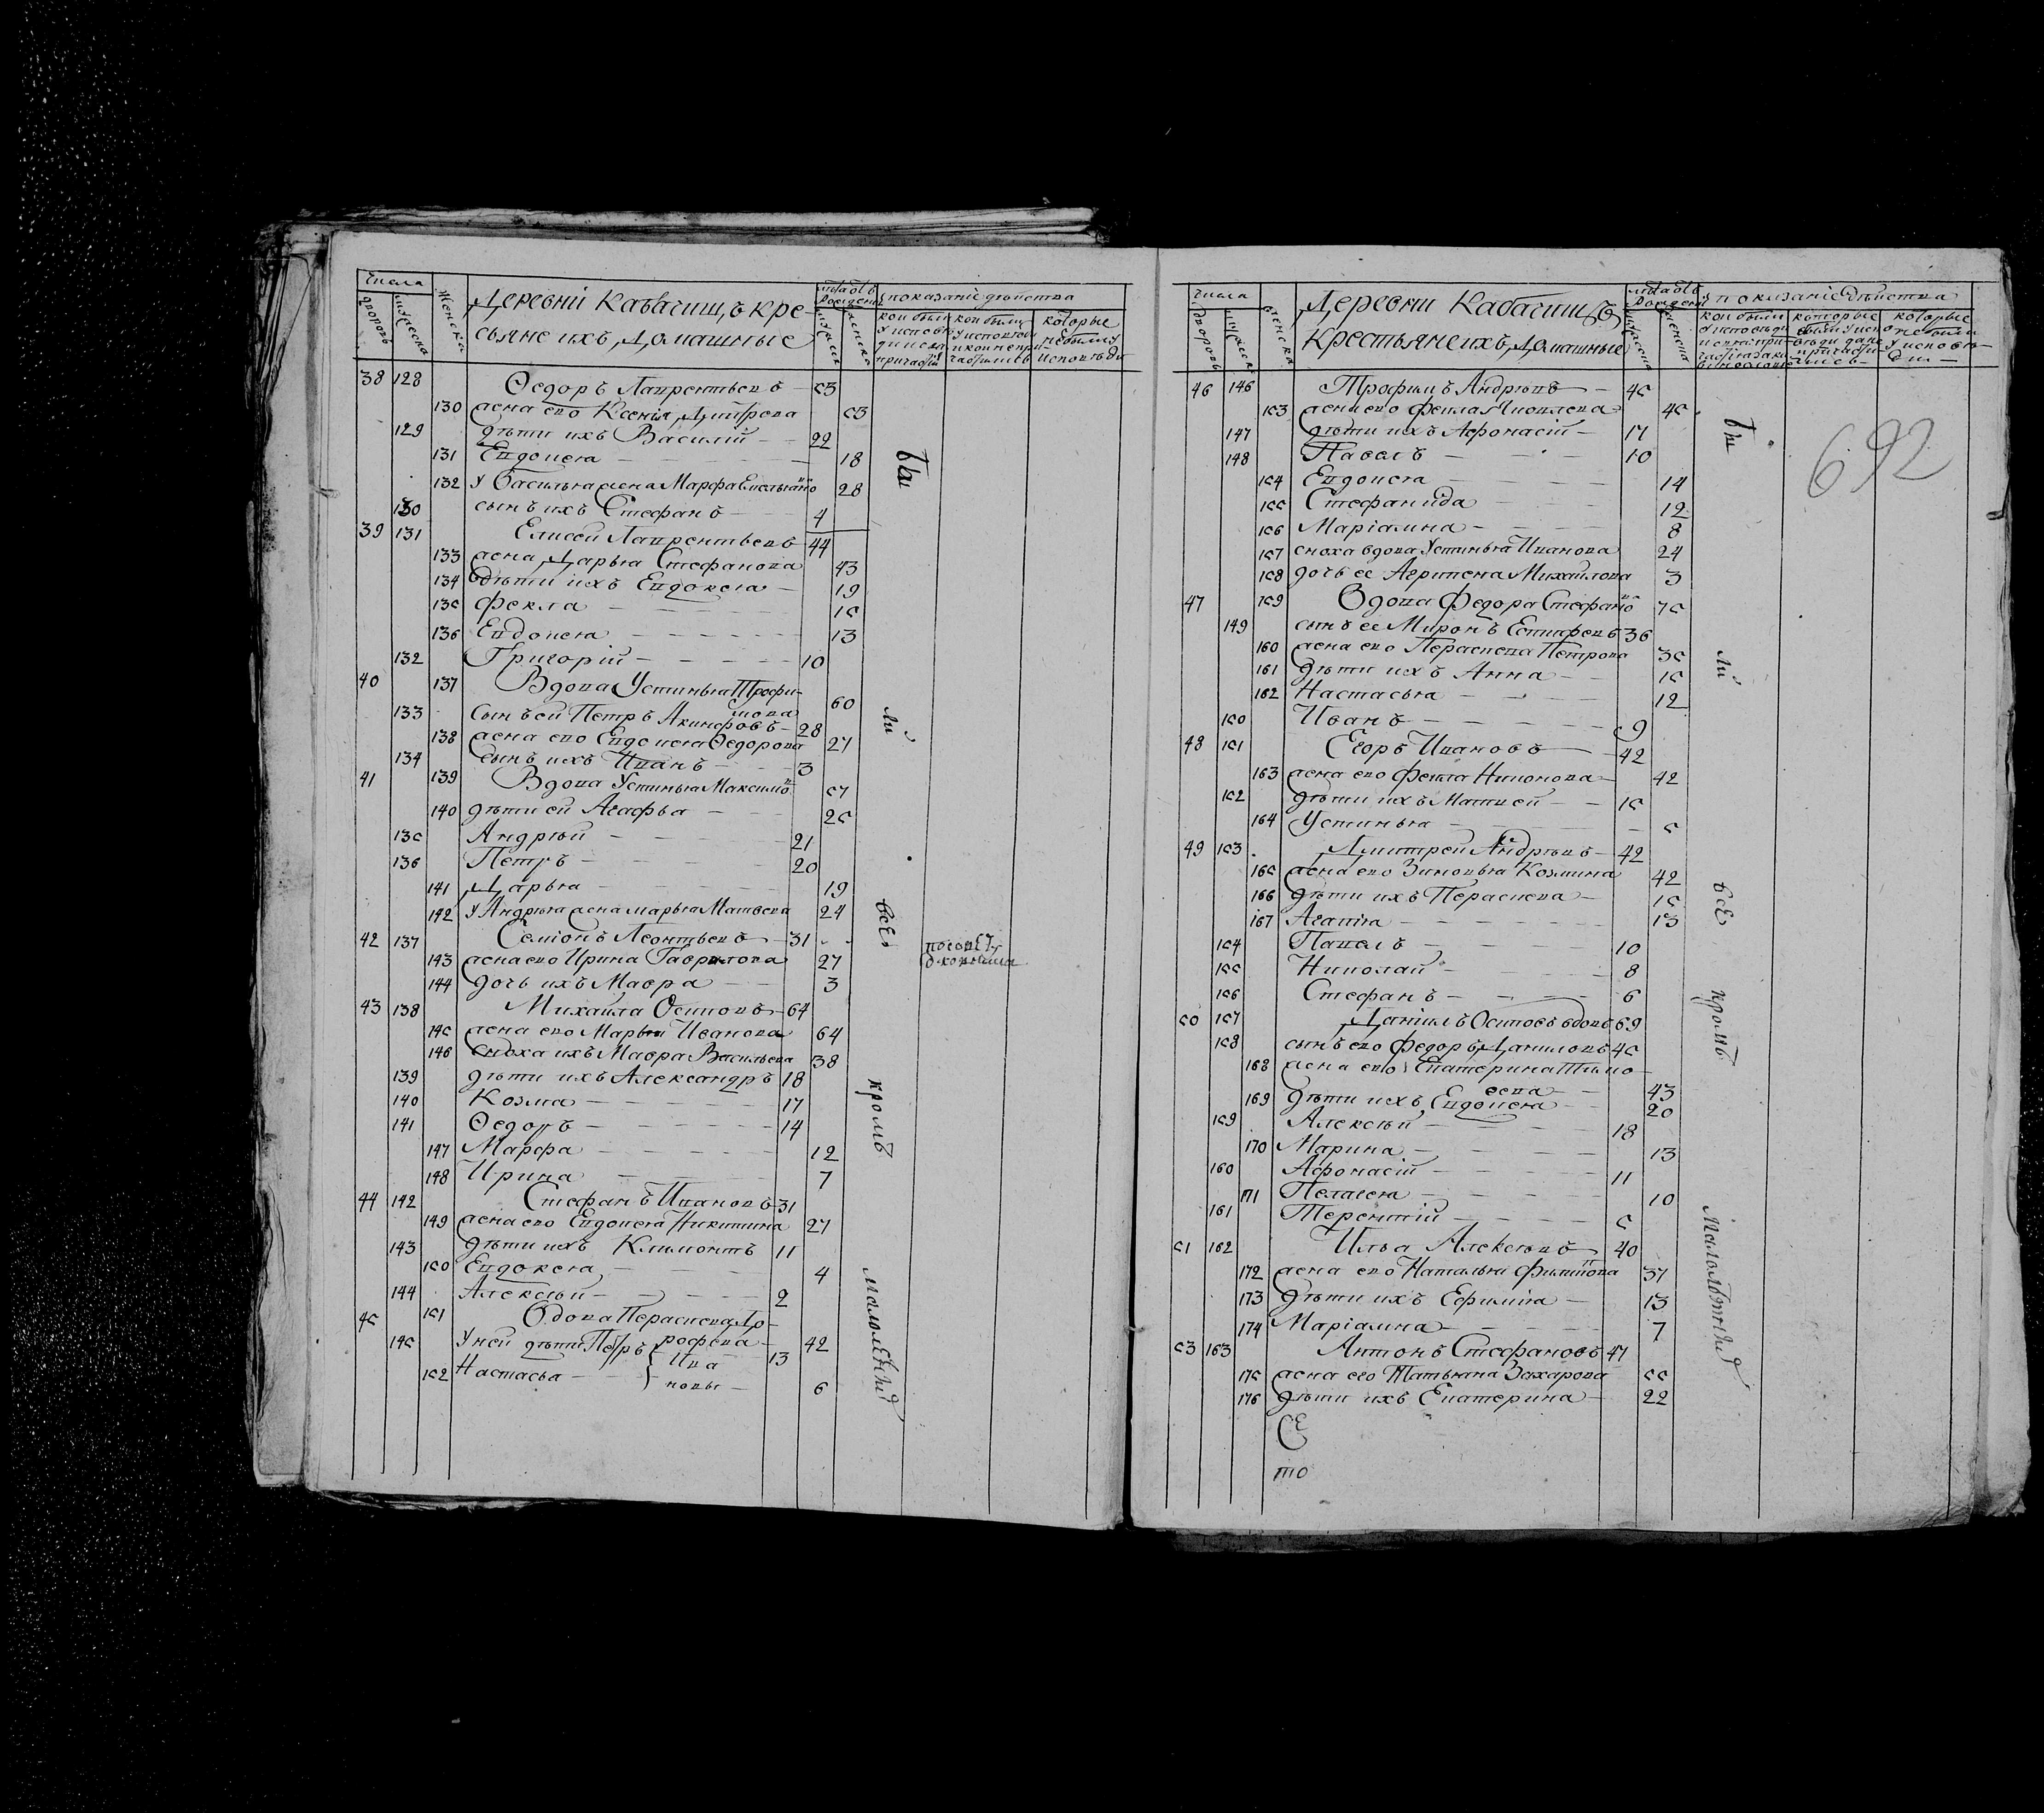 числа
дворовъ
мужеска
женска
Деревни Кабасищъ кре-
стьяне ихъ, домашные
лѣта отъ рожденія
мужеска
женска
показаніе дѣйства
кои были у исповѣди и св. причастія
кои были у исповѣди и кои не причастились
которые не были у исповѣди
38 128 Ѳедоръ Лаврентьевъ 53
130 жена его Ксенія Дмитрева 53
129 дѣти ихъ Василій 22
131 Евдокея 18
132 У Василья жена Марфа Емельяно 28
130 сынъ ихъ Стефанъ 4
39 131 Елисей Лаврентьевъ 44
133 жена Дарья Стефанова 43
134 дѣти ихъ Евдокея 19
135 Фекла 15
136 Евдокея 13
132 Григорій 10
40 137 Вдова Устинья Трофи-
мова 60
133 сынъ ей Петръ Акинфовъ 28
138 жена его Евдокея Ѳедорова 27
134 сынъ ихъ Иванъ 3
41 139 Вдова Устинья Максимо 57
140 дѣти ей Агафья 25
135 Андрѣй 21
136 Петръ 20
141 Дарья 19
142 У Андрѣя жена марья Матвева 24
42 137 Семіонъ Леонтьевъ 31
143 жена его Ирина Гаврилова 27
144 дочь ихъ Мавра 3
43 138 Михайла Осиповъ 64
145 жена его Марья Иванова 64
146 сноха ихъ Мавра Васильева 38
139 дѣти ихъ Александръ 18
140 Козма 17
141 Ѳедоръ 14
147 Марфа 12
148 Ирина 7
44 142 Стефанъ Ивановъ 31
149 жена его Евдокея Никитина 27
143 дѣти ихъ Климонтъ 11
150 Евдокея 4
144 Алексѣй 2
45 151 Вдова Пераскева До-
рофева 42
145 У ней дѣти Петръ Ива 13
152 Настасья новы 6
бы
ли
всѣ
кромѣ
малолѣтныхъ
числа
дворовъ
мужеска
женска
Деревни Кабасищъ
Крестьяне ихъ, домашные
лѣта отъ рожденія
мужеска
женска
показаніе дѣйства
692
46 146 Трофимъ Андрѣевъ 45
153 жена его Фекла Яковлева 45
147 дѣти ихъ Афонасій 17
148 Павелъ 10
154 Евдокея 14
155 Стефанида 12
156 Маріамна 8
157 сноха вдова Устинья Иванова 24
158 дочь ее Агрипена Михайлова 3
47 159 Вдова Федора Стефано 75
149 сынъ ее Миронъ Естифевъ 36
160 жена его Пераскева Петрова 35
161 дѣти ихъ Анна 15
162 Настасья 12
150 Иванъ 9
48 151 Егоръ Ивановъ 42
163 жена его Фекла Никонова 42
152 дѣти ихъ Матвей 15
164 Устинья 5
49 153 Дмитрей Андрѣевъ 42
165 жена его Зиновья Козмина 42
166 дѣти ихъ Пераскева 15
167 Агапія 13
154 Павелъ 10
155 Николай 8
156 Стефанъ 6
50 157 Даніилъ Осиповъ вдовъ 69
158 сынъ его Федоръ Даниловъ 45
168 жена его Екатерина Тимо-
феева 43
169 дѣти ихъ Евдокея 20
159 Алексѣй 18
170 Марина 13
160 Афонасій 11
171 Пелагея 10
161 Терентій 5
51 162 Илья Алексѣевъ 40
172 жена его Наталья Филипова 37
173 дѣти ихъ Ефимія 13
174 Маріамна 7
53 163 Антонъ Стефановъ 47
175 жена его Татьяна Захарова 55
176 дѣти ихъ Екатерина 22
бы
ли
всѣ
кромѣ
малолѣтныхъ
то